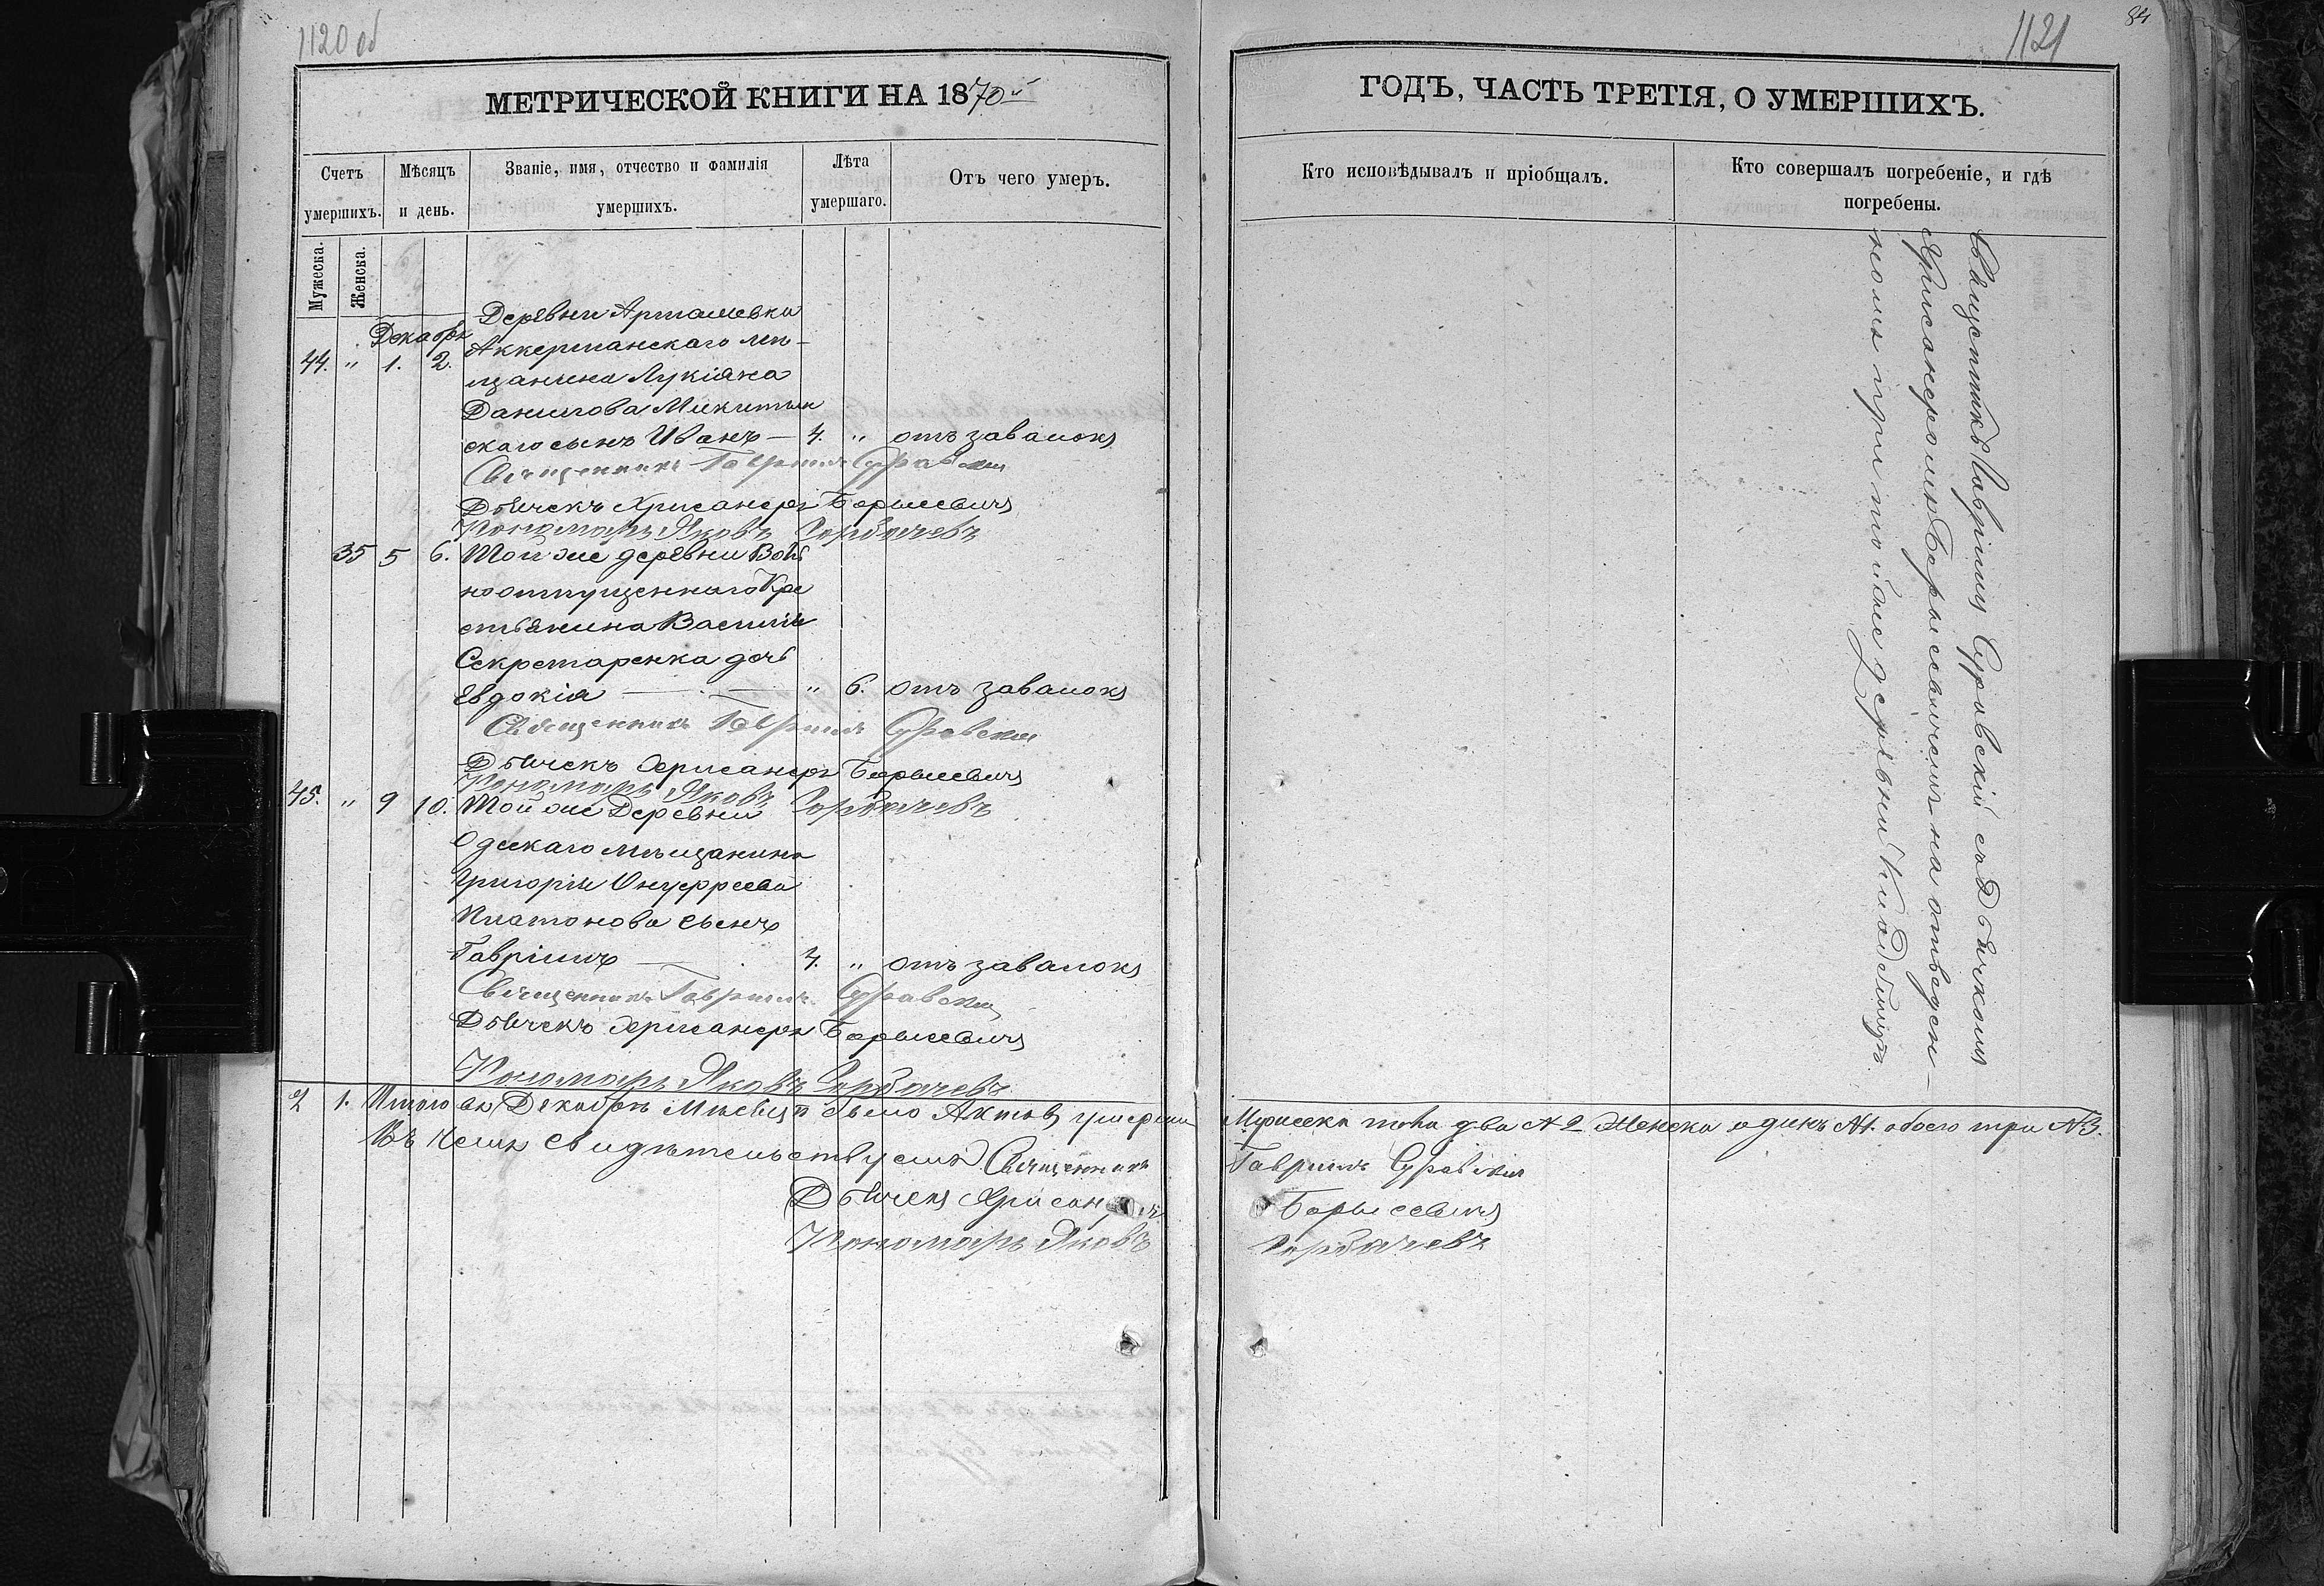 1120 об
МЕТРИЧЕСКОЙ КНИГИ НА 1870й
Счетъ умершихъ.
Мѣсяцъ и день.
Званіе, имя, отчество и фамилія умершихъ.
Лѣта умершаго.
Отъ чего умеръ.
Мужеска.
Женска.
Декабрь
Деревни Арташевки
44. " 1. 2. Аккерманскаго мѣ-
щанина Лукіяна
Данилова Микитын
скаго сынъ Иванъ — 4. " отъ завалокъ
Священникъ Гавриилъ Суравскій
Дьячекъ Хрисанфъ Борысевичъ
Пономарь Яковъ Горбачевъ
35 5 6. Той же деревни Воль
ноотпущеннаго Кре
стьянина Василія
Секретаренка дочь
Евдокія — " 6. отъ завалокъ
Священникъ Гавриилъ Суравскій
Дьячекъ Хрисанфъ Борысевичъ
Пономарь Яковъ Горбачевъ
45. " 9 10. Той же Деревни
Одескаго мѣщанина
Григорія Онуфреева
Платонова сынъ
Гавріилъ — 4. " отъ завалокъ
Священникъ Гавриилъ Суравскій
Дьячекъ Хрисанфъ Борысевичъ
Пономарь Яковъ Горбачевъ
2 1. Итого въ Декабрѣ Мѣсяцѣ было Актовъ умерши
Въ чемъ свидѣтельствуемъ Священникъ
Дьячекъ
Пономарь Яковъ
1121
84
ГОДЪ, ЧАСТЬ ТРЕТІЯ, О УМЕРШИХЪ.
Кто исповѣдывалъ и пріобщалъ.
Кто совершалъ погребеніе, и гдѣ погребены.
Священникъ Гавріилъ Суравскій съ Дьячкомъ
Хрисанфомъ Борысевичемъ на отведен-
номъ при той же деревни Кладбищѣ.
Мужеска пола два №2 Женска одинъ №1. обоего три №3.
Гавриилъ Суравскій
Борысевичъ
Горбачевъ